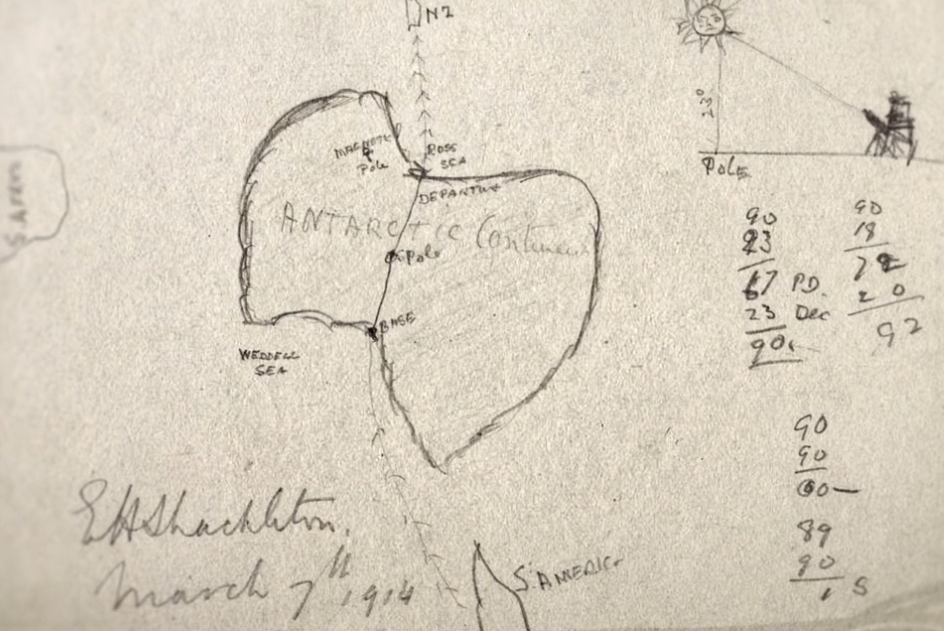 NZ
23°
POLE
MAGNETIC
Pole
ROSS
SEA
DEPARTURE
ANTARCTIC Continent
Pole
BASE
WEDDELL
SEA
S. AFRICA
90
23
67 PD.
23 Dec
90
90
18
72
20
92
90
90
00
89
90
1 S
EHShackleton.
March 7th 1914
S. AMERICA